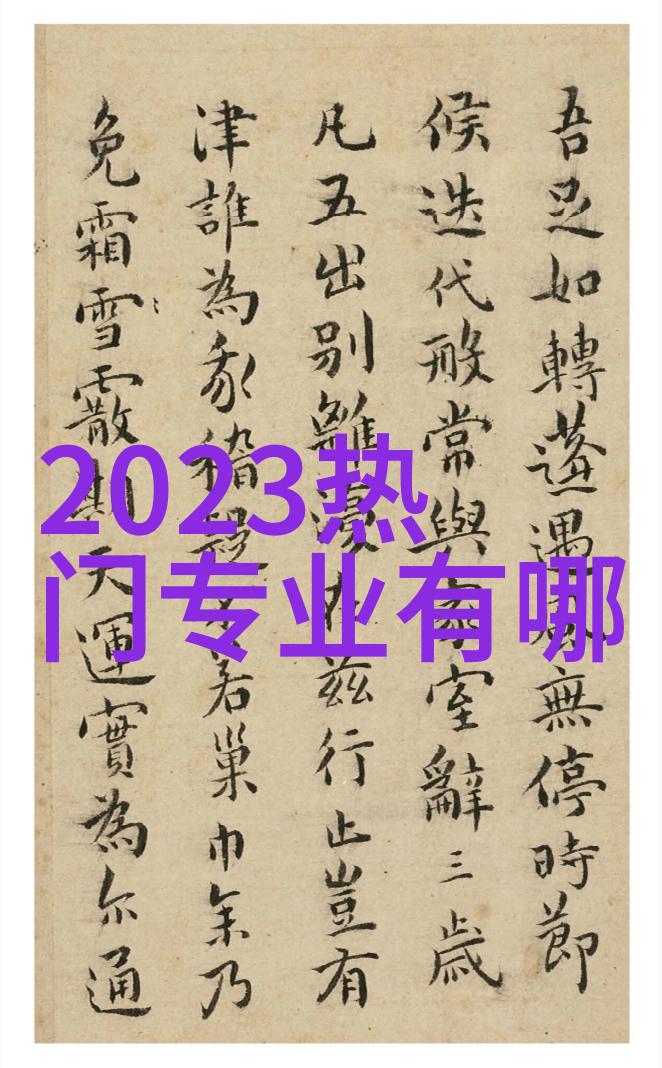 2023热
门专业有哪
吾足如轉蓬遇無停時節
候迭代常與家室辭三歲
凡五出別離在茲行止豈有
津誰為若巢巾乃
免霜雪霰天運實為尔通